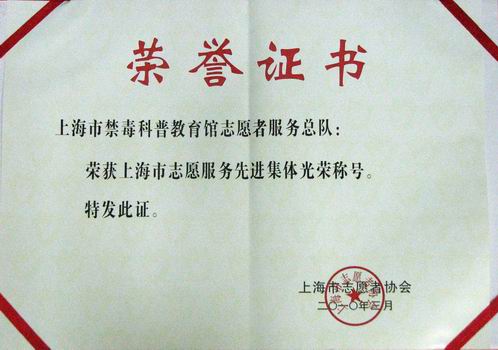 荣誉证书
上海市禁毒科普教育馆志愿者服务总队：
荣获上海市志愿服务先进集体光荣称号。
特发此证。
上海市志愿者协会
二〇一〇年三月